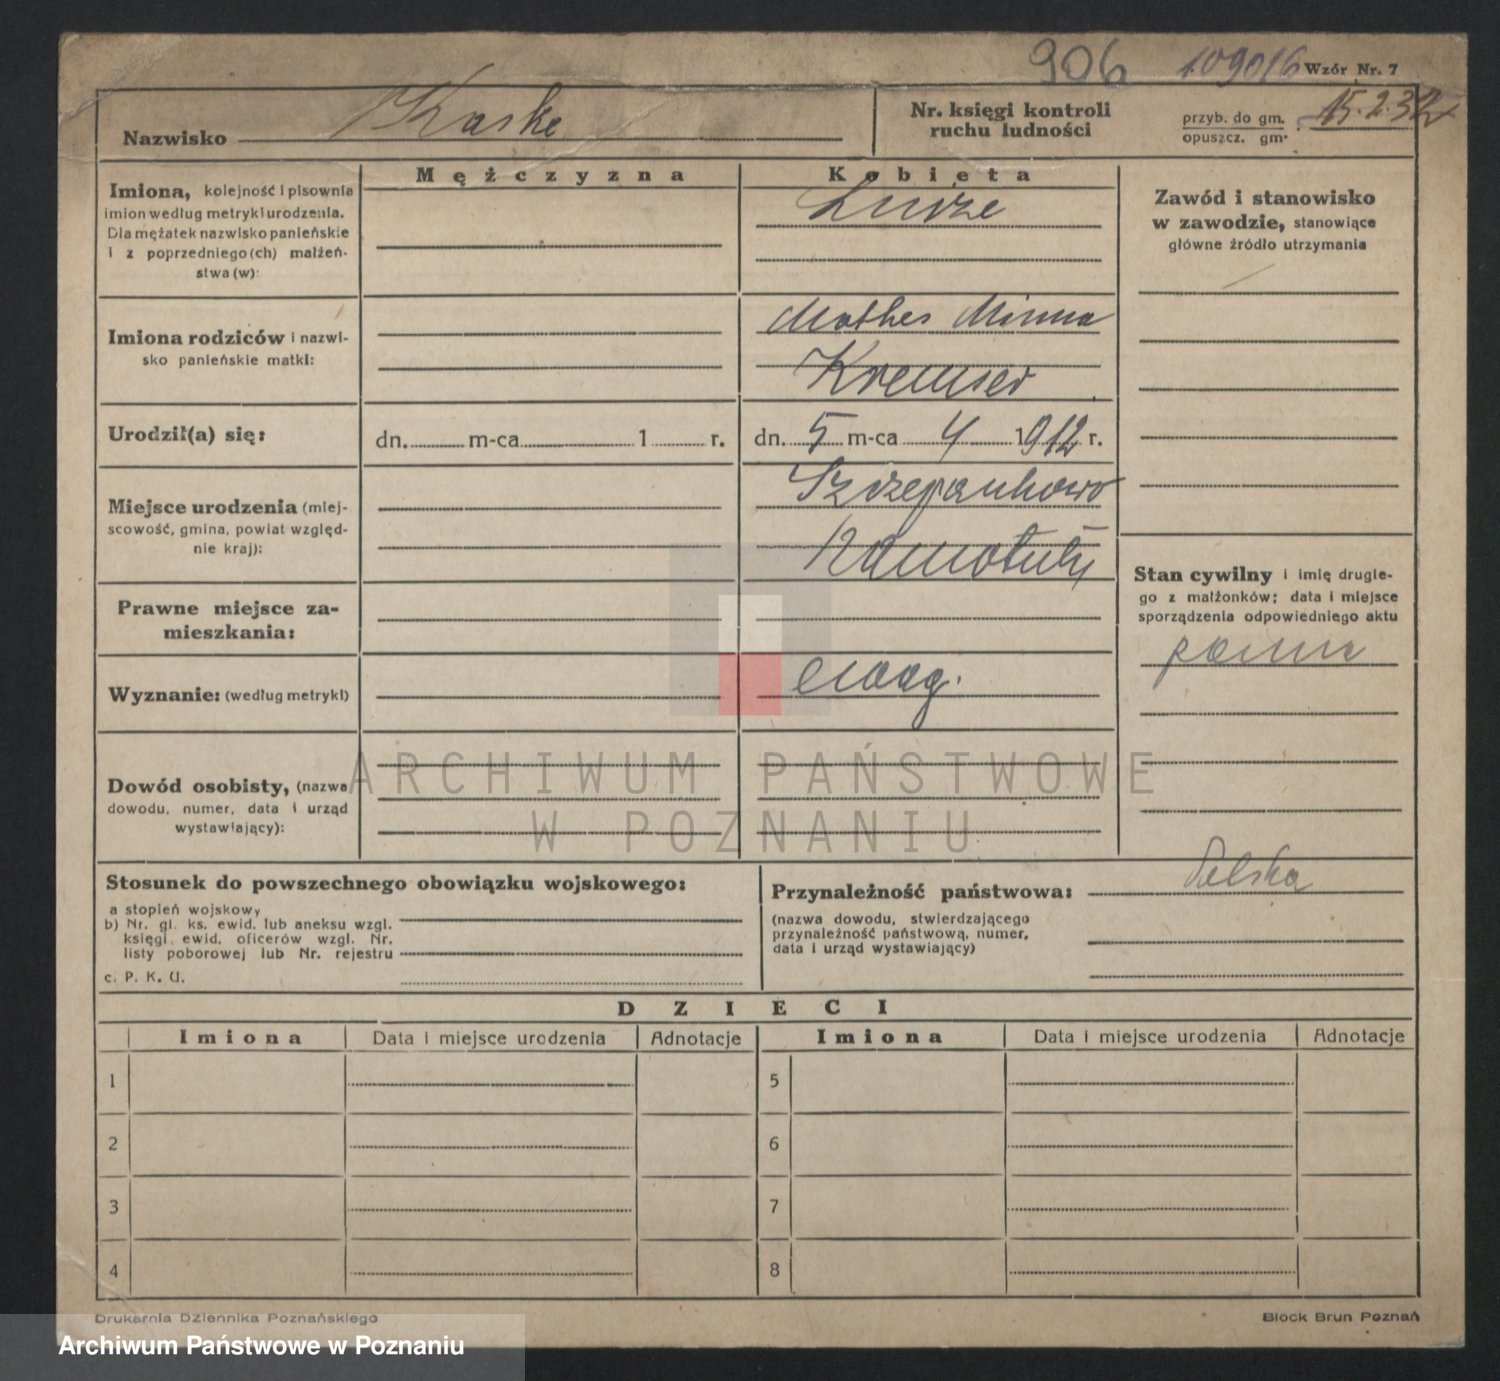 906 109016 Wzór Nr. 7
Nazwisko Kaske
Nr. księgi kontroli
ruchu ludności
przyb. do gm.
opuszcz. gm.
15.2.32
Mężczyzna
Kobieta
Imiona, kolejność i pisownia
imion według metryki urodzenia.
Dla mężatek nazwisko panieńskie
i z poprzedniego (ch) małżeń-
stwa (w):
Luize
Zawód i stanowisko
w zawodzie, stanowiące
główne źródło utrzymania
Imiona rodziców i nazwi-
sko panieńskie matki:
Mathes Minna
Kremser
Urodził(a) się:
dn. m-ca 1 r.
dn. 5 m-ca 4 1912 r.
Miejsce urodzenia (miej-
scowość, gmina, powiat względ-
nie kraj):
Szczepankowo
Szamotuły
Stan cywilny i imię drugie-
go z małżonków; data i miejsce
sporządzenia odpowiedniego aktu
panna
Prawne miejsce za-
mieszkania:
Wyznanie: (według metryki)
ewang.
Dowód osobisty, (nazwa
dowodu, numer, data i urząd
wystawiający):
ARCHIWUM PAŃSTWOWE
W POZNANIU
Stosunek do powszechnego obowiązku wojskowego:
a stopień wojskowy
b) Nr. gł. ks. ewid. lub aneksu wzgl.
księgi ewid. oficerów wzgl. Nr.
listy poborowej lub Nr. rejestru
c. P. K. U.
Przynależność państwowa: Polska
(nazwa dowodu, stwierdzającego
przynależność państwową, numer,
data i urząd wystawiający)
DZIECI
Imiona Data i miejsce urodzenia Adnotacje Imiona Data i miejsce urodzenia Adnotacje
1 5
2 6
3 7
4 8
Drukarnia Dziennika Poznańskiego
Block Brun Poznań
Archiwum Państwowe w Poznaniu